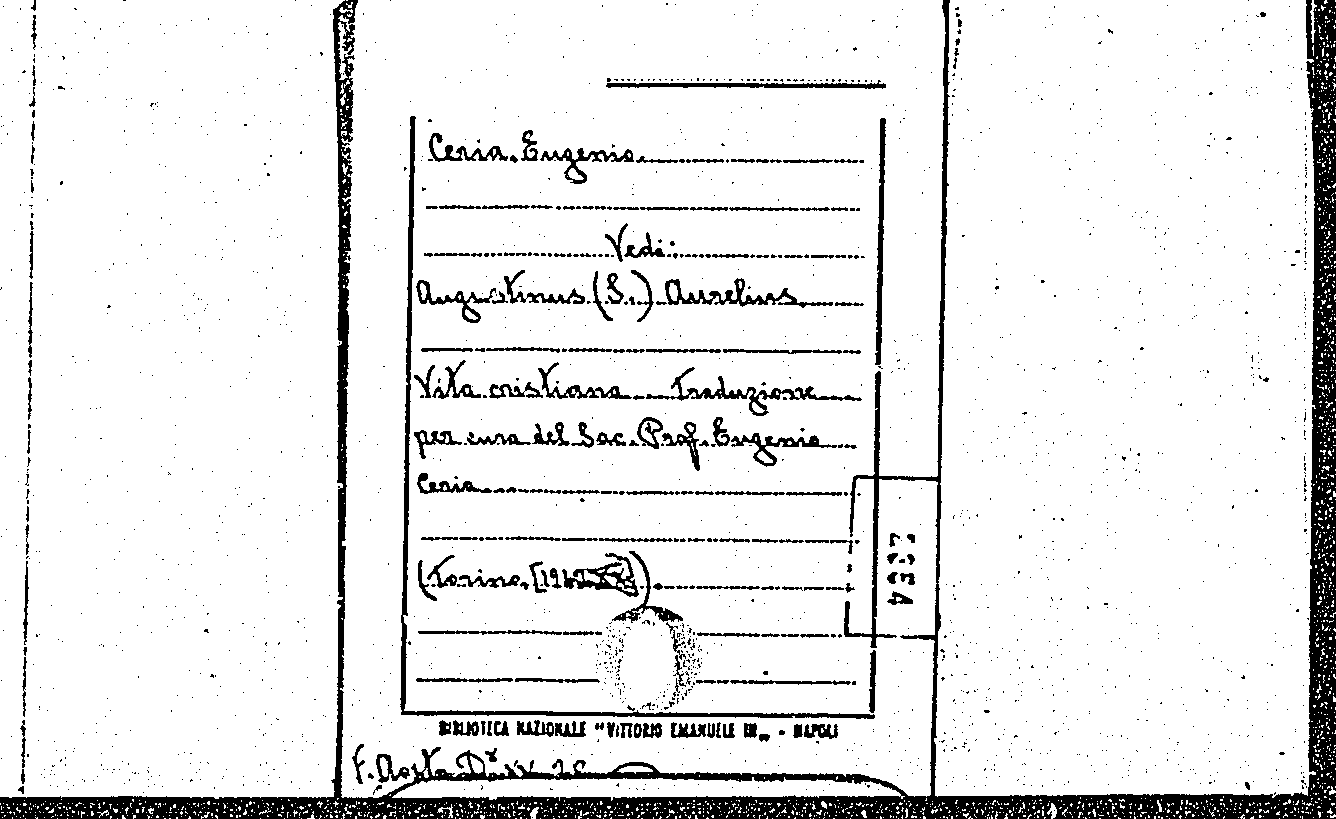 Ceria Eugenio.
Vedi:
Augustinus (S.) Aurelius.
Vita cristiana. Traduzione
per cura del Sac. Prof. Eugenio
Ceria
(Torino,
BIBLIOTECA NAZIONALE "VITTORIO EMANUELE III„ - NAPOLI
F. Aosta